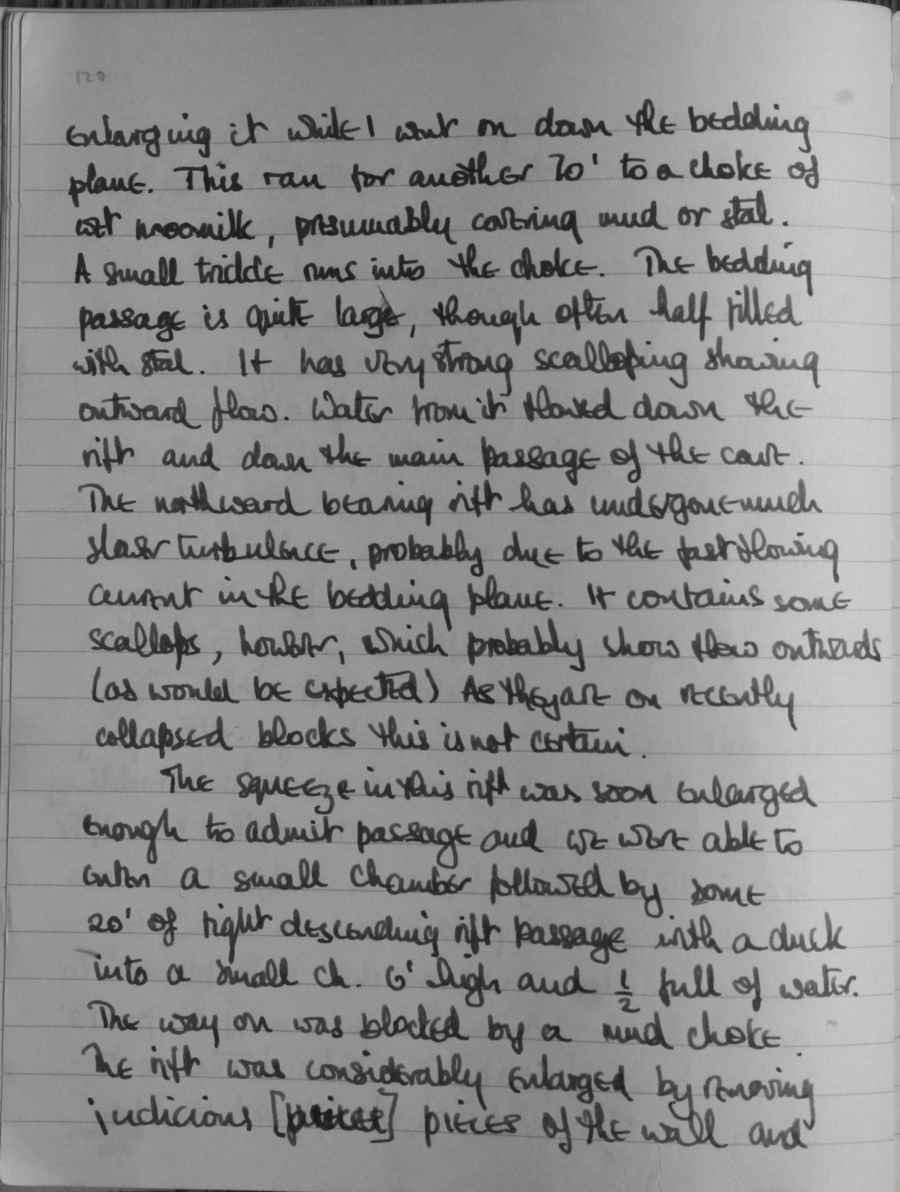 120
enlarging it while I went on down the bedding
plane. This ran for another 70' to a choke of
wet moomilk, presumably covering mud or stal.
A small trickle runs into the choke. The bedding
passage is quite large, though often half filled
with stal. It has very strong scalloping showing
outward flow. Water from it flowed down the
rift and down the main passage of the cave.
The northward bearing rift has undergone much
slower turbulence, probably due to the fast flowing
current in the bedding plane. It contains some
scallops, however, which probably show flow outwards
(as would be expected) As they are on recently
collapsed blocks this is not certain.
The squeeze in this rift was soon enlarged
enough to admit passage and we were able to
enter a small chamber followed by some
20' of tight descending rift passage with a duck
into a small ch. 6' high and ½ full of water.
The way on was blocked by a mud choke.
The rift was considerably enlarged by removing
judicious [] pieces of the wall and